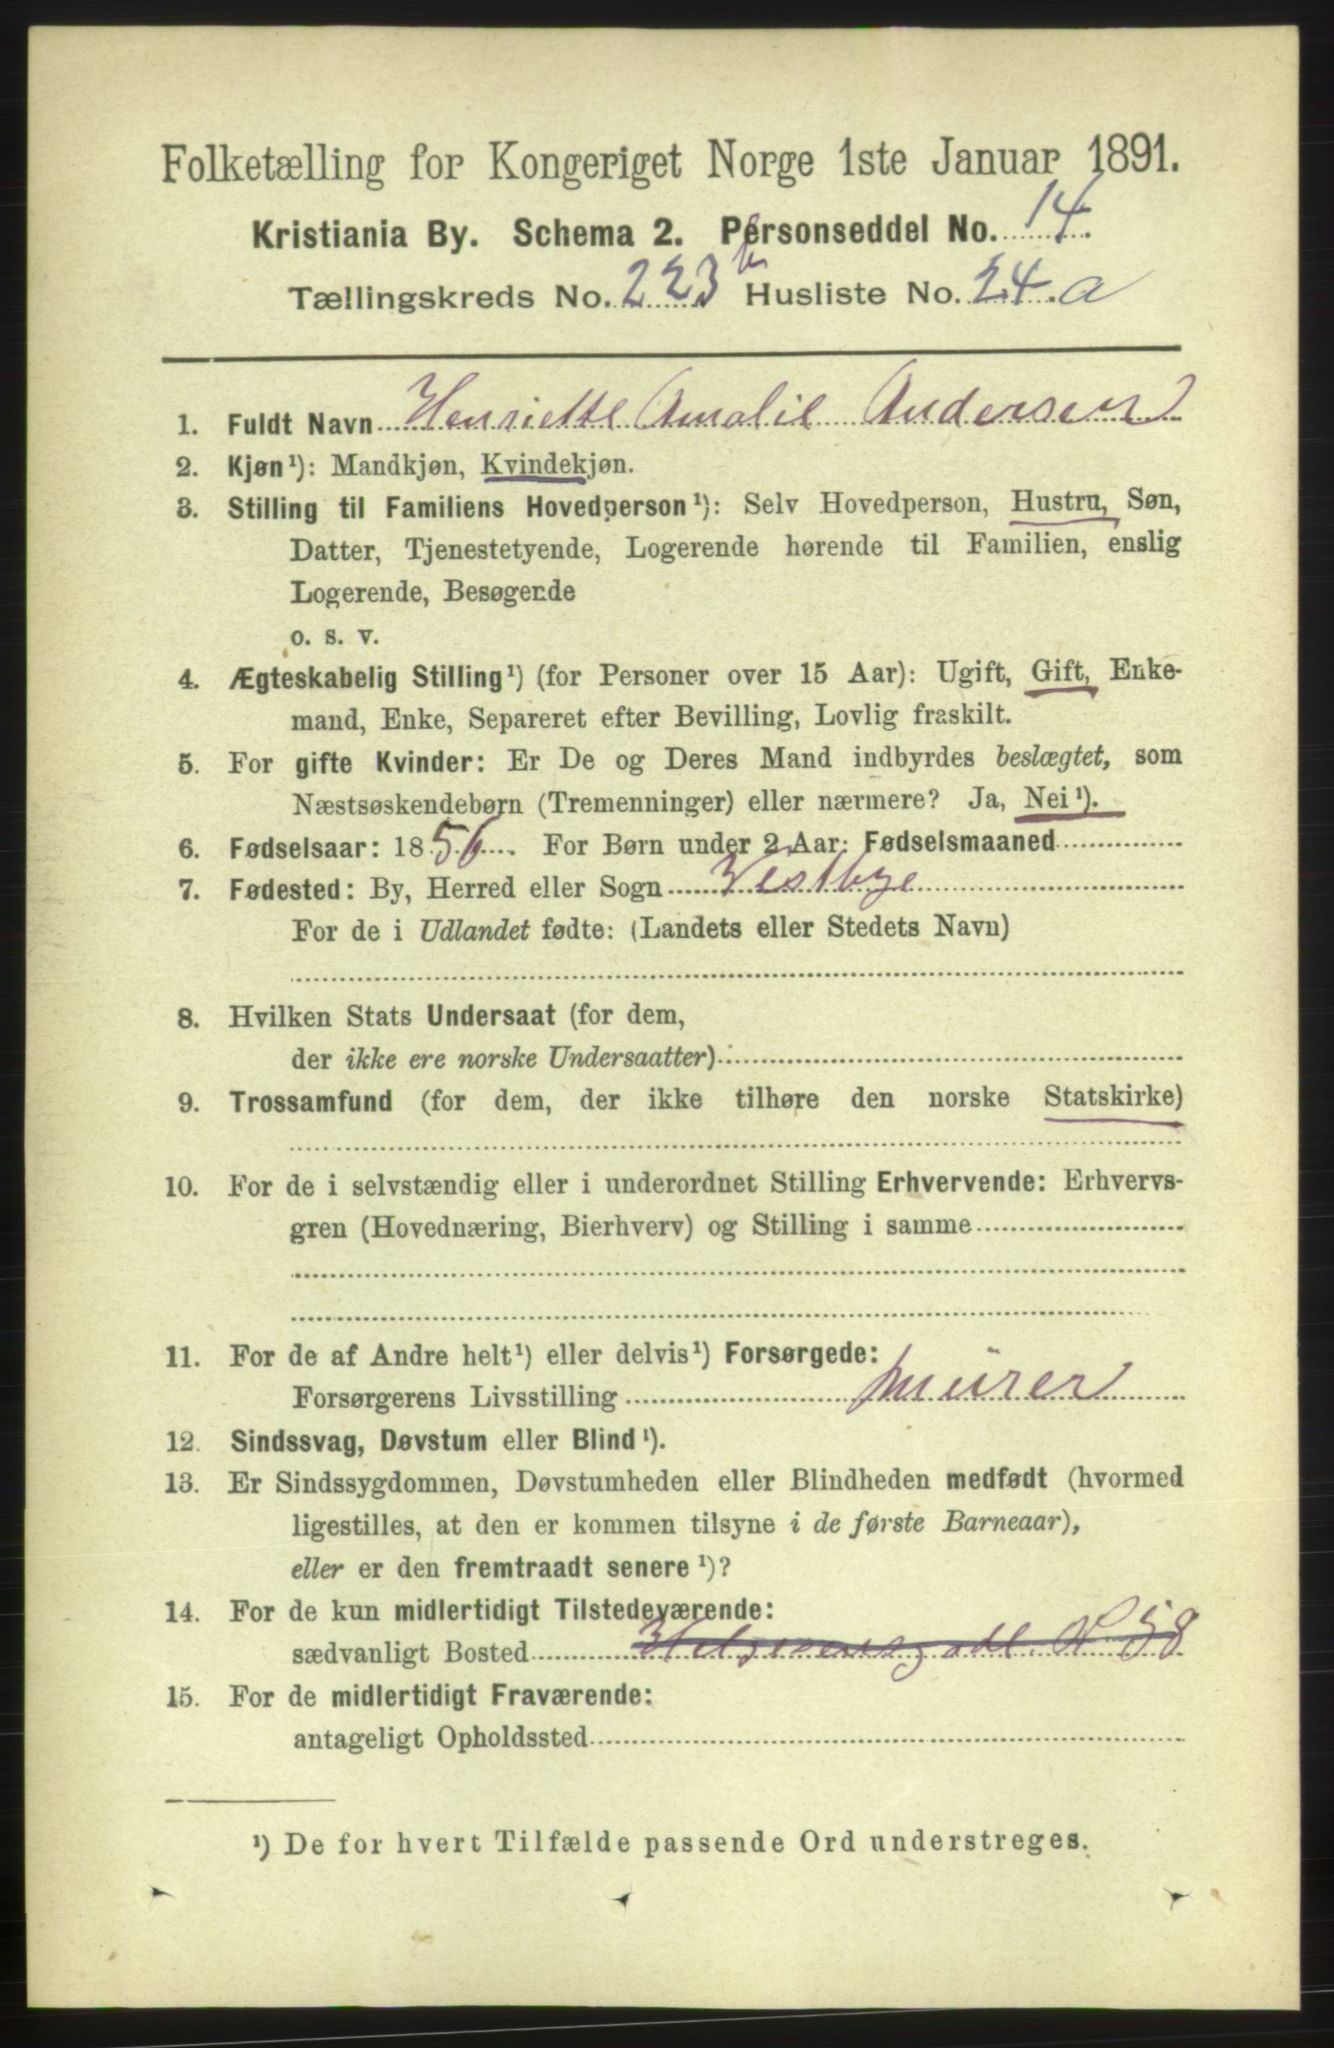 Folketælling for Kongeriget Norge 1ste Januar 1891.
Kristiania By. Schema 2. Personseddel No. 14.
Tællingskreds No. 223 b Husliste No. 24 a
1. Fuldt Navn Henriette Amalie Andersen
2. Kjøn¹): Mandkjøn, Kvindekjøn.
3. Stilling til Familiens Hovedperson¹): Selv Hovedperson, Hustru, Søn,
Datter, Tjenestetyende, Logerende hørende til Familien, enslig
Logerende, Besøgende
o. s. v.
4. Ægteskabelig Stilling¹) (for Personer over 15 Aar): Ugift, Gift, Enke-
mand, Enke, Separeret efter Bevilling, Lovlig fraskilt.
5. For gifte Kvinder: Er De og Deres Mand indbyrdes beslægtet, som
Næstsøskendebørn (Tremenninger) eller nærmere? Ja, Nei¹).
6. Fødselsaar: 1856. For Børn under 2 Aar: Fødselsmaaned
7. Fødested: By, Herred eller Sogn Vestbye
For de i Udlandet fødte: (Landets eller Stedets Navn)
8. Hvilken Stats Undersaat (for dem,
der ikke ere norske Undersaatter)
9. Trossamfund (for dem, der ikke tilhøre den norske Statskirke)
10. For de i selvstændig eller i underordnet Stilling Erhvervende: Erhvervs-
gren (Hovednæring, Bierhverv) og Stilling i samme
11. For de af Andre helt¹) eller delvis¹) Forsørgede:
Forsørgerens Livsstilling Murer
12. Sindssvag, Døvstum eller Blind¹).
13. Er Sindssygdommen, Døvstumheden eller Blindheden medfødt (hvormed
ligestilles, at den er kommen tilsyne i de første Barneaar),
eller er den fremtraadt senere¹)?
14. For de kun midlertidigt Tilstedeværende:
sædvanligt Bosted Helgesensgade N 58
15. For de midlertidigt Fraværende:
antageligt Opholdssted
¹) De for hvert Tilfælde passende Ord understreges.